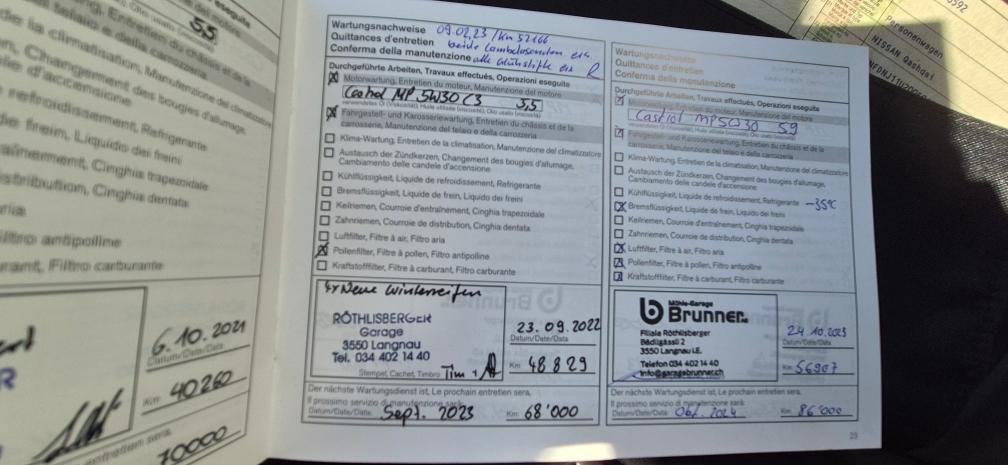 5,5
6.10.2021
Datum/Date/Data
Km 40260
70000
Wartungsnachweise 09.02.23 / Km 52166
Quittances d'entretien beide Lambdasonden ers
Conferma della manutenzione alle Glühstifte ers
Durchgeführte Arbeiten, Travaux effectués, Operazioni eseguite
Motorwartung, Entretien du moteur, Manutenzione del motore
Castrol MP 5W30 C3 5,5
verwendetes Öl (Viscosität), Huile utilisée (viscosité), Olio usato (viscosità)
Fahrgestell- und Karosseriewartung, Entretien du châssis et de la
carrosserie, Manutenzione del telaio e della carrozzeria
Klima-Wartung, Entretien de la climatisation, Manutenzione del climatizzatore
Austausch der Zündkerzen, Changement des bougies d'allumage,
Cambiamento delle candele d'accensione
Kühlflüssigkeit, Liquide de refroidissement, Refrigerante
Bremsflüssigkeit, Liquide de frein, Liquido dei freini
Keilriemen, Courroie d'entraînement, Cinghia trapezoidale
Zahnriemen, Courroie de distribution, Cinghia dentata
Luftfilter, Filtre à air, Filtro aria
Pollenfilter, Filtre à pollen, Filtro antipolline
Kraftstofffilter, Filtre à carburant, Filtro carburante
4x Neue Winterreifen
RÖTHLISBERGER
Garage
3550 Langnau
Tel. 034 402 14 40
Stempel, Cachet, Timbro
23.09.2022
Datum/Date/Data
Km 48829
Der nächste Wartungsdienst ist, Le prochain entretien sera,
Il prossimo servizio di manutenzione sarà:
Datum/Date/Data: Sept. 2023 Km: 68'000
Wartungsnachweise
Quittances d'entretien
Conferma della manutenzione
Durchgeführte Arbeiten, Travaux effectués, Operazioni eseguite
Motorwartung, Entretien du moteur, Manutenzione del motore
Castrol MP 5W30
verwendetes Öl (Viscosität), Huile utilisée (viscosité), Olio usato (viscosità)
Fahrgestell- und Karosseriewartung, Entretien du châssis et de la
carrosserie, Manutenzione del telaio e della carrozzeria
Klima-Wartung, Entretien de la climatisation, Manutenzione del climatizzatore
Austausch der Zündkerzen, Changement des bougies d'allumage,
Cambiamento delle candele d'accensione
Kühlflüssigkeit, Liquide de refroidissement, Refrigerante -35°C
Bremsflüssigkeit, Liquide de frein, Liquido dei freini
Keilriemen, Courroie d'entraînement, Cinghia trapezoidale
Zahnriemen, Courroie de distribution, Cinghia dentata
Luftfilter, Filtre à air, Filtro aria
Pollenfilter, Filtre à pollen, Filtro antipolline
Kraftstofffilter, Filtre à carburant, Filtro carburante
Möhle-Garage
Brunner
Filiale Röthlisberger
Bädligässli 2
3550 Langnau i.E.
Telefon 034 402 14 40
info@garagebrunner.ch
24.10.2023
Datum/Date/Data
Km 56907
Der nächste Wartungsdienst ist, Le prochain entretien sera,
Il prossimo servizio di manutenzione sarà:
Datum/Date/Data: Okt. 2024 Km: 86'000
Personenwagen
NISSAN Qashqai